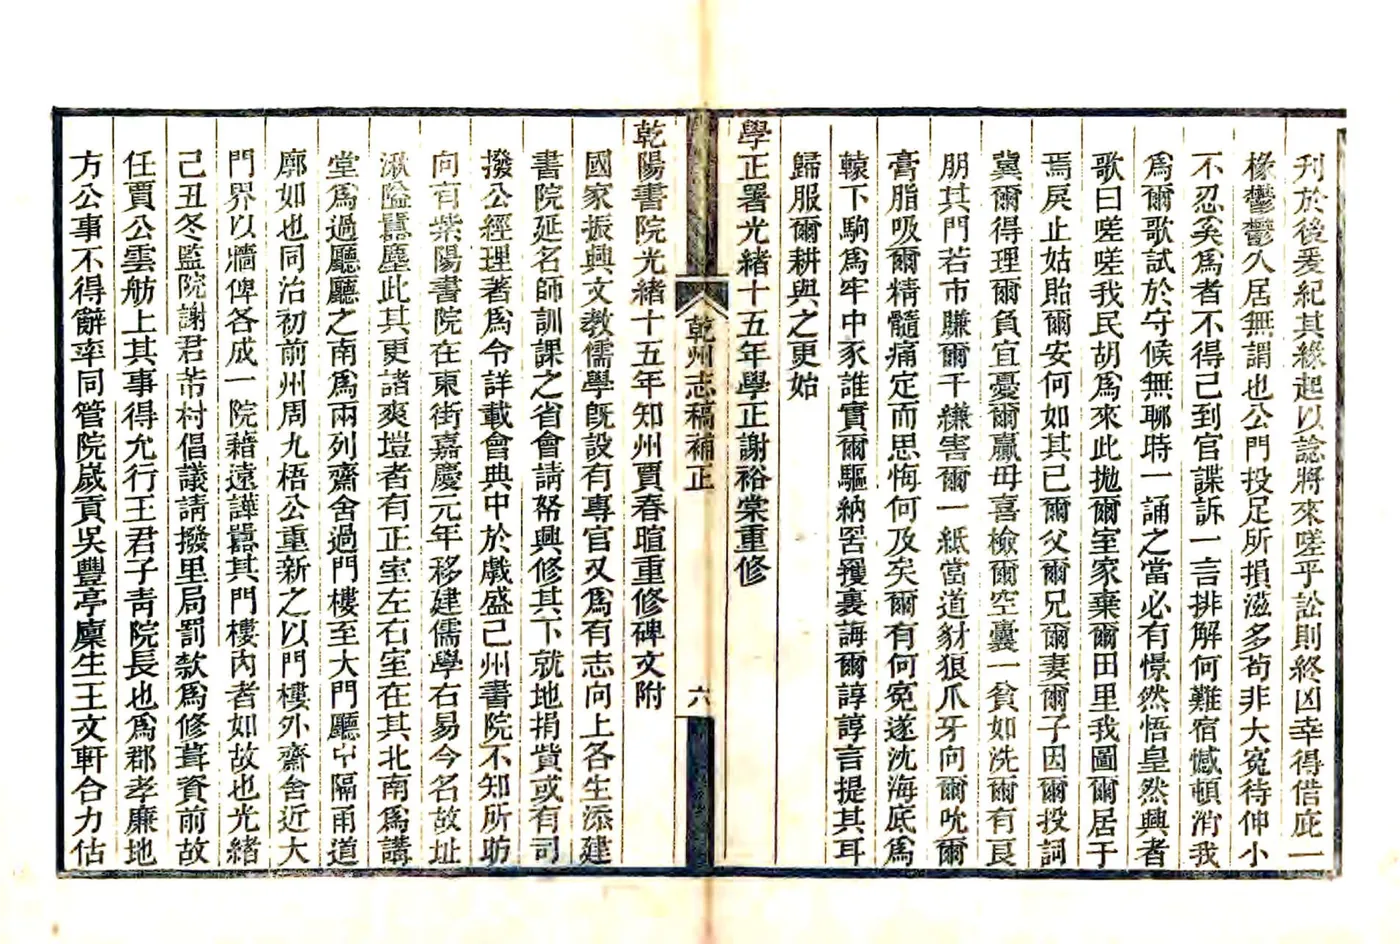 刋於後爰紀其緣起以諗將來嗟乎訟則終凶幸得借庇一
椽鬱鬱久居無謂也公門投足所損滋多苟非大寃待伸小
不忍矣爲者不得已到官諜訴一言排解何難宿憾頓消我
爲爾歌試於守候無聊時一誦之當必有憬然悟皇然興者
歌曰嗟嗟我民胡爲來此拋爾室家棄爾田里我圖爾居于
焉戾止姑貽爾安何如其已爾父爾兄爾妻爾子因爾投詞
冀爾得理爾負宜憂爾贏毋喜檢爾空囊一貧如洗爾有良
朋其門若市賺爾千縑害爾一紙當道豺狼爪牙向爾吮爾
膏脂吸爾精髓痛定而思悔何及矣爾有何寃遂沈海底爲
轅下駒爲牢中豕誰實爾驅納罟擭裏誨爾諄諄言提其耳
歸服爾耕與之更始
學正署光緒十五年學正謝裕棠重修
乾州志稿補正
六
乾陽書院光緒十五年知州賈春暄重修碑文附
國家振興文教儒學旣設有專官又爲有志向上各生添建
書院延名師訓課之省會請帑興修其下就地捐貲或有司
撥公經理著爲令詳載會典中於戲盛已州書院不知所昉
向有紫陽書院在東街嘉慶元年移建儒學右易今名故址
湫隘囂塵此其更諸爽塏者有正室左右室在其北南爲講
堂爲過廳廳之南爲兩列齋舍過門樓至大門廳中隔甬道
廓如也同治初前州周九梧公重新之以門樓外齋舍近大
門界以牆俾各成一院藉遠譁囂其門樓內者如故也光緒
己丑冬監院謝君芾村倡議請撥里局罰欵爲修葺資前故
任賈公雲舫上其事得允行王君子靑院長也爲郡孝廉地
方公事不得辭率同管院歲貢吳豐亭廩生王文軒合力估